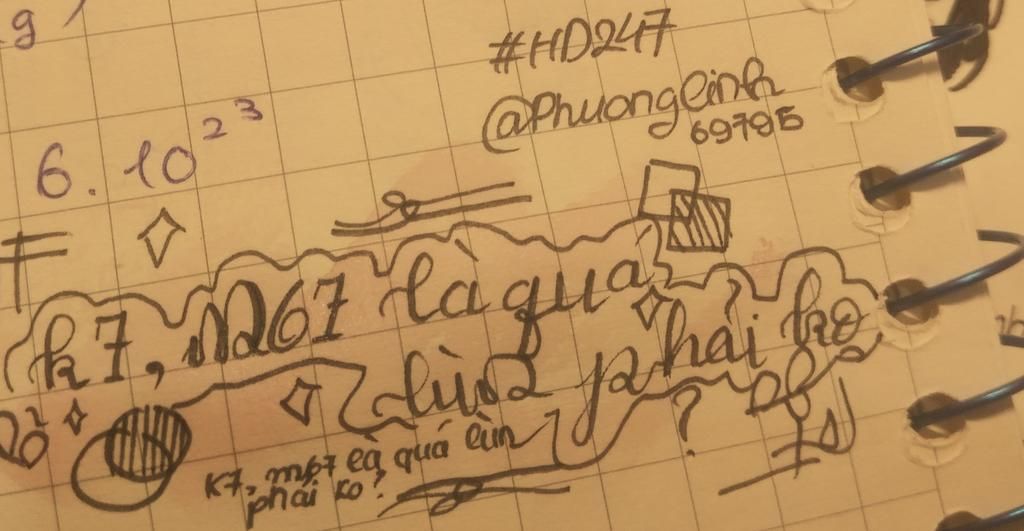 #HD247
@Phuonglinh
69795
6. 10²³
k7, m67 là qua
lùn phải ko
?
k7, m67 là quá lùn
phải ko?